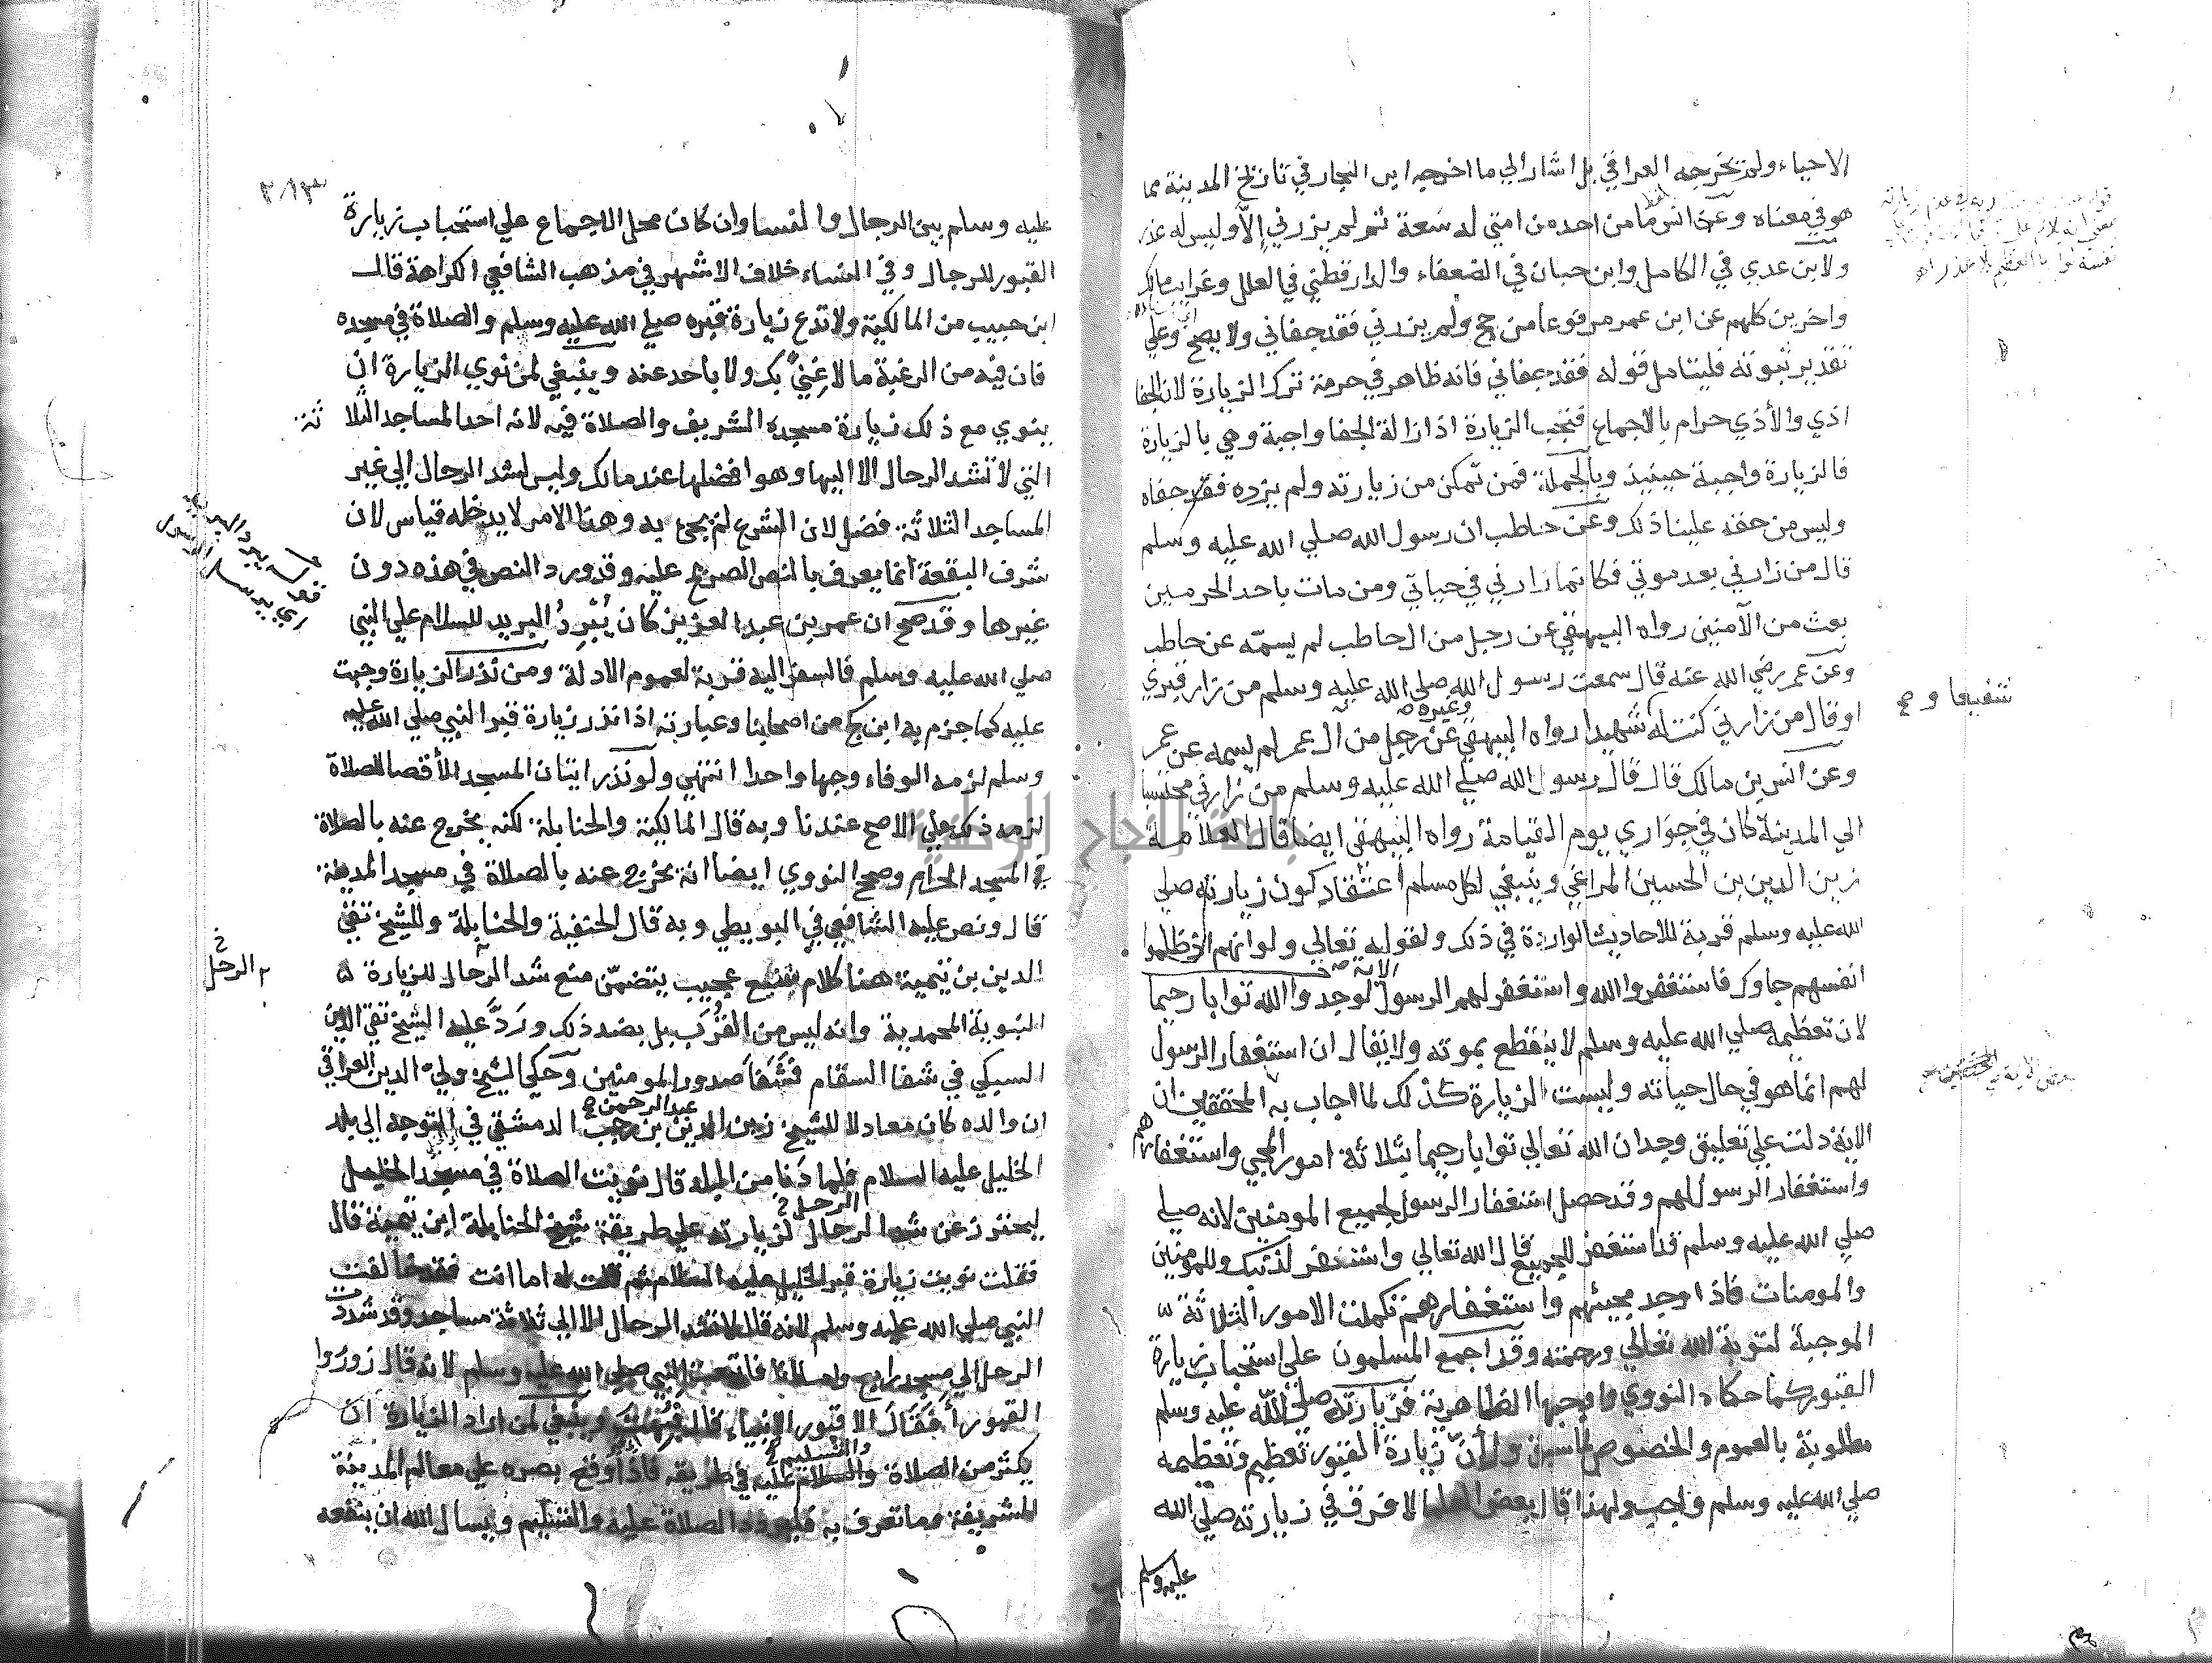 الاحياء ولم يخرجه العراقي بل اشار الي ما اخرجه ابن النجار في تاريخ المدينة مما
هو في معناه وعن انس ما من احد من امتي له سعة ثم لم يزرني الا وليس له عذر
ولابن عدي في الكامل وابن حبان في الضعفاء والدارقطني في العلل وغرايب مالك
واخرين كلهم عن ابن عمر مرفوعا من حج ولم يزرني فقد جفاني ولا يصح وعلي
تقدير ثبوته فليتامل قوله فقد جفاني فانه ظاهر في حرمة ترك الزيارة لان الجفا
اذي والأذي حرام بالاجماع فتجب الزيارة اذ ازالة الجفا واجبة وهي بالزيارة
فالزيارة واجبة حينيذ وبالجملة فمن تمكن من زيارته ولم يزره فقد جفاه
وليس من حقه علينا ذلك وعن حاطب ان رسول الله صلي الله عليه وسلم
قال من زارني بعد موتي فكانما زارني في حياتي ومن مات باحد الحرمين
بعث من الآمنين رواه البيهقي عن رجل من ال حاطب لم يسمّه عن حاطب
وعن عمر رضي الله عنه قال سمعت رسول الله صلي الله عليه وسلم من زار قبري
او قال من زارني كنت له شهيدا رواه البيهقي وغيره عن رجل من ال عمر لم يسمه عن عمر
شفيعا و
وعن انس بن مالك قال قال رسول الله صلي الله عليه وسلم من زارني محتسبا
الي المدينة كان في جواري يوم القيامة رواه البيهقي ايضا قال العلامة
زين الدين بن الحسين المراغي وينبغي لكل مسلم اعتقاد كون زيارته صلي
الله عليه وسلم قربة للاحاديث الواردة في ذلك ولقوله تعالي ولو انهم اذ ظلموا
انفسهم جاوك فاستغفروا الله واستغفر لهم الرسول لوجدوا الله توابا رحيما الاية
لان تعظيمه صلي الله عليه وسلم لا ينقطع بموته ولا يقال ان استغفار الرسول
لهم انما هو في حال حياته وليست الزيارة كذلك لما اجاب به المحققين ان
الاية دلت علي تعليق وجدان الله تعالي توابا رحيما بثلاثة امور المجي واستغفارهم
واستغفار الرسول لهم وقد حصل استغفار الرسول لجميع المومنين لانه صلي
صلي الله عليه وسلم قد استغفر للجميع قال الله تعالي واستغفر لذنبك وللمومنين
والمومنات فاذا وجد مجيئهم واستغفارهم تكملت الامور الثلاثة
الموجبة لتوبة الله تعالي ورحمته وقد اجمع المسلمون علي استحباب زيارة
القبور كما حكاه النووي واوجبها الظاهرية فزيارته صلي الله عليه وسلم
مطلوبة بالعموم والخصوص لما سبق ولأن زيارة القبور تعظيم وتعظيمه
صلي الله عليه وسلم واجب ولهذا قال بعض العلما لا فرق في زيارته صلي الله
عليه وسلم
عليه وسلم بين الرجال والنسا وان كان محل الاجماع علي استحباب زيارة
القبور للرجال وفي النساء خلاف الاشهر في مذهب الشافعي الكراهة قال
ابن حبيب من المالكية ولا تدع زيارة قبره صلي الله عليه وسلم والصلاة في مسجده
فان فيه من الرغبة ما لا غني بك ولا باحد عنه وينبغي لمن نوي الزيارة ان
ينوي مع ذلك زيارة مسجده الشريف والصلاة فيه لانه احد المساجد الثلاثة
التي لا تشد الرحال الا اليها وهو افضلها عند مالك وليس لشد الرحال الي غير
المساجد الثلاثة فضل لان الشرع لم يجئ به وهذا الامر لا يدخله قياس لان
شرف البقعة انما يعرف بالنص الصريح عليه وقد ورد النص في هذه دون
غيرها وقد صح ان عمر بن عبد العزيز كان يُبْرِدُ البريد للسلام علي النبي
صلي الله عليه وسلم فالسفر اليه قربة لعموم الادلة ومن نذر الزيارة وجبت
عليه كما جزم به ابن كج من اصحابنا وعبارته اذا نذر زيارة قبر النبي صلي الله عليه
وسلم لزمه الوفاء وجها واحدا انتهي ولو نذر اتيان المسجد الأقصا للصلاة
لزمه ذلك علي الاصح عندنا وبه قال المالكية والحنابلة لكنه يخرج عنه بالصلاة
في المسجد الحرام وصحح النووي ايضا انه يخرج عنه بالصلاة في مسجد المدينة
قال ونص عليه الشافعي في البويطي وبه قال الحنفية والحنابلة وللشيخ تقي
الدين بن تيمية هنا كلام شنيع عجيب يتضمن منع شد الرحال للزيارة
الرحل
النبوية المحمدية وانه ليس من القُرَب بل بضد ذلك ورَدَّ عليه الشيخ تقي الدين
السبكي في شفا السقام فشفا صدور المومنين وحكي الشيخ ولي الدين العراقي
ان والده كان معادلا للشيخ زين الدين عبد الرحمن بن رجب الدمشقي في التوجه الي بلد
الخليل عليه السلام فلما دَنا من البلد قال نويت الصلاة في مسجد الخليل
ليحترز عن شد الرحال لزيارته علي طريقة شيخ الحنابلة ابن تيمية قال
الرحل
فقلت نويت زيارة قبر الخليل عليه السلام ثم قلت له اما انت فقد خالفت
النبي صلي الله عليه وسلم لانه قال لا تشد الرحال الا الي ثلاثة مساجد وقد شددت
الرحل الي مسجد رابع واما انا فاتبعت النبي صلي الله عليه وسلم لانه قال زوروا
القبور أَفَقَالَ الا قبور الانبياء قال فبهت وينبغي لمن اراد الزيارة ان
يكثر من الصلاة والسلام عليه في طريقه فاذا وقع بصره علي معالم المدينة
والتسليم
الشريفة وما تعرف به فليردد الصلاة عليه والتسليم ويسال الله ان ينفعه